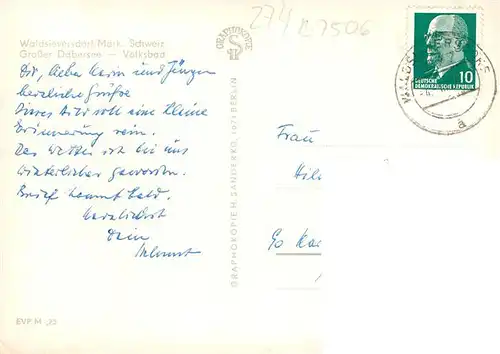 274 R7506
Waldsieversdorf/Märk. Schweiz
Großer Däbersee — Volksbad
Dir, lieber Karin und Jürgen
herzliche Grüße
Dieses Bild soll eine kleine
Erinnerung sein.
Das Wetter ist bei uns
winterlicher geworden.
Brief kommt bald.
Herzlichst
Dein
Helmut
EVP M -,20
GRAPHOKOPIE
GRAPHOKOPIE H. SANDERKO, 1071 BERLIN
10
DEUTSCHE
DEMOKRATISCHE REPUBLIK
a
Frau
Hil